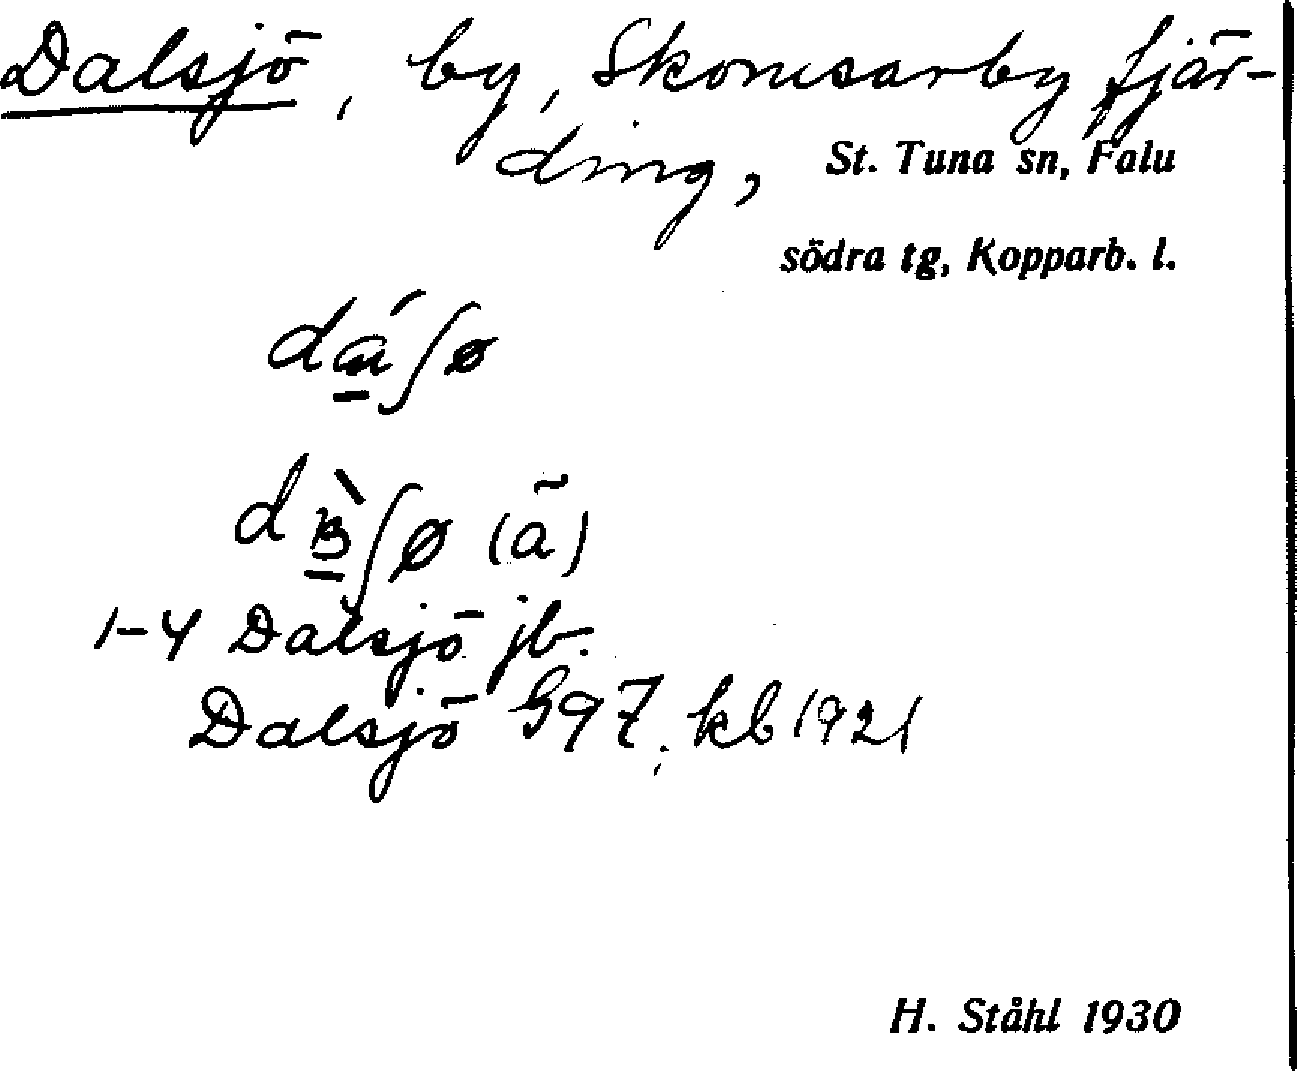 Dalsjö, by, Skomsarby fjär-
ding, St. Tuna sn, Falu
södra tg, Kopparb. l.
1-4 Dalsjö jb.
Dalsjö G97, kb 1921
H. Ståhl 1930